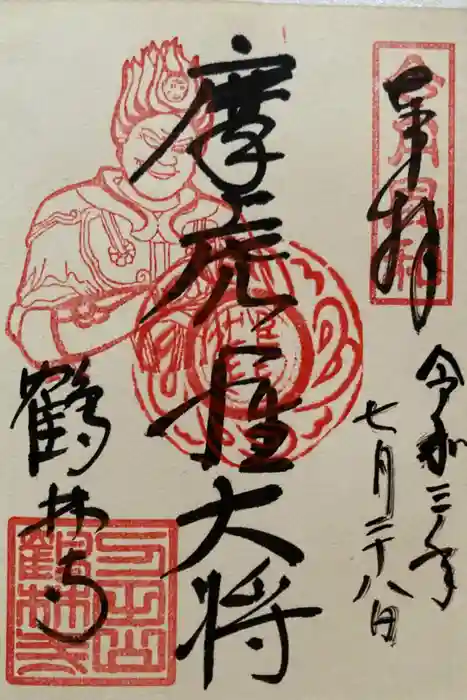 奉拝
令和三年
七月二十八日
摩虎羅大将
鶴林寺